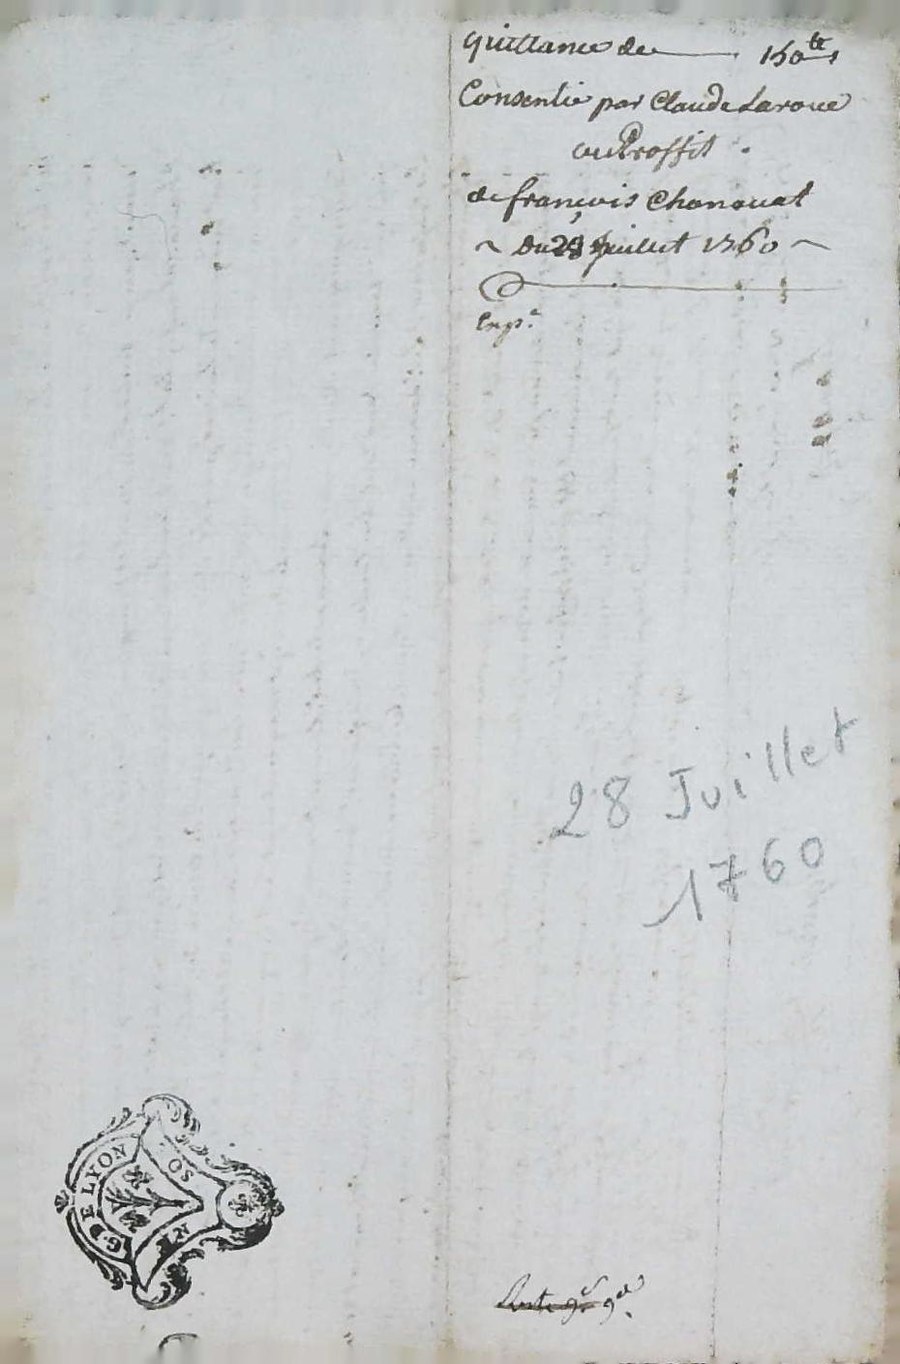 quittance de 150 tt
Consentie par Claude Laroue
au Proffit
de françois Chanouat
~ Du 28 juillet 1760 ~
Exp.e
28 Juillet
1760
G. DE LYON
OS